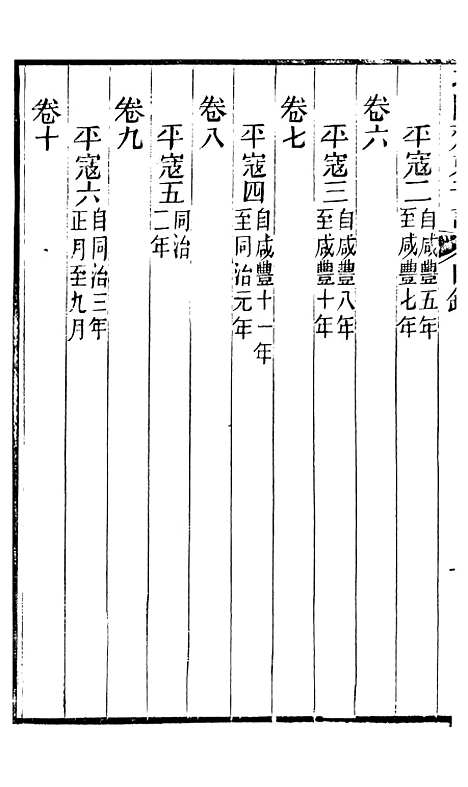 平寇二自咸豐五年至咸豐七年
卷六
平寇三自咸豐八年至咸豐十年
卷七
平寇四自咸豐十一年至同治元年
卷八
平寇五同治二年
卷九
平寇六自同治三年正月至九月
卷十